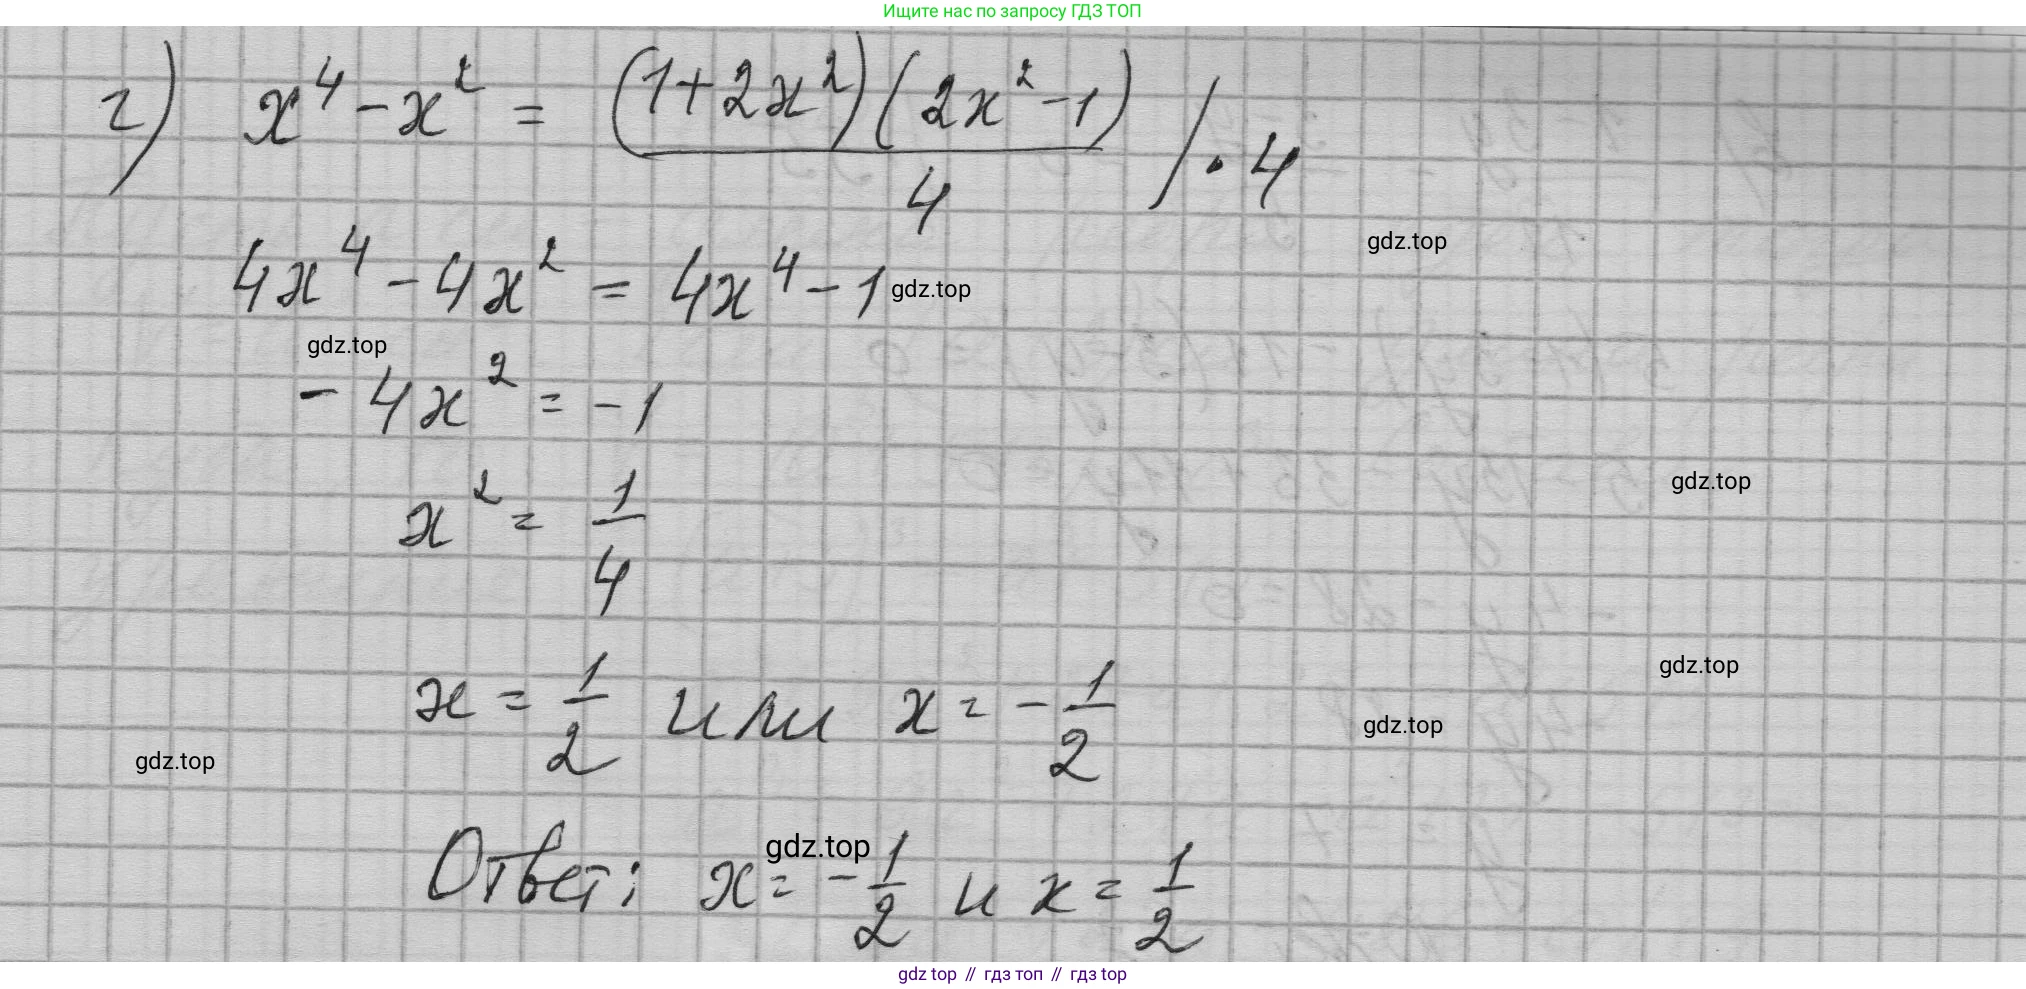 Ищите нас по запросу ГДЗ ТОП
г) x⁴ - x² = (1+2x²)(2x²-1)/4 / · 4
gdz.top
4x⁴ - 4x² = 4x⁴ - 1 gdz.top
gdz.top
- 4x² = -1
gdz.top
x² = 1/4
gdz.top
x = 1/2 или x = - 1/2
gdz.top
gdz.top
gdz.top
Ответ: x = - 1/2 и x = 1/2
gdz top // гдз топ // гдз top